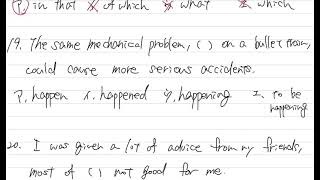 ア. in that イ. of which ウ. what エ. which
19. The same mechanical problem, ( ) on a bullet train,
could cause more serious accidents.
ア. happen イ. happened ウ. happening エ. to be
happening
20. I was given a lot of advice from my friends,
most of ( ) not good for me.